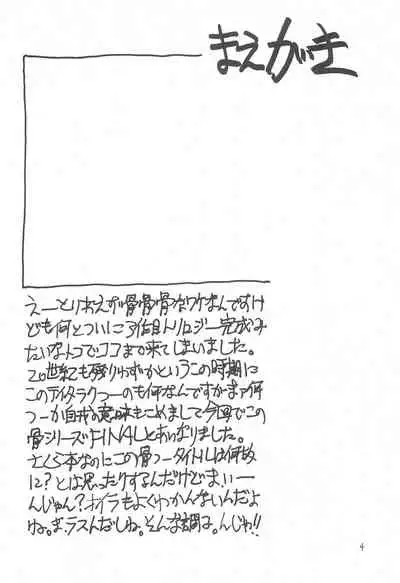 まえがき
えーとりあえず骨骨骨なワケなんですけ
ども何とついに3作目トリロジー完成み
たいなトコでココまで来てしまいました。
20世紀も残りわずかというこの時期に
このテイタラクつーのも何なんですがまァ何
つーか自戒の意味もこめまして今回でこの
骨シリーズFINALとあいなりました。
さくら本なのにこの骨ってタイトルは何故
に?とは思ったりするんだけどまぁいー
んじゃん?オイラもよくわかんないんだよ
ねっま、ラストだしね。そんな調子。んじゃ!!
4